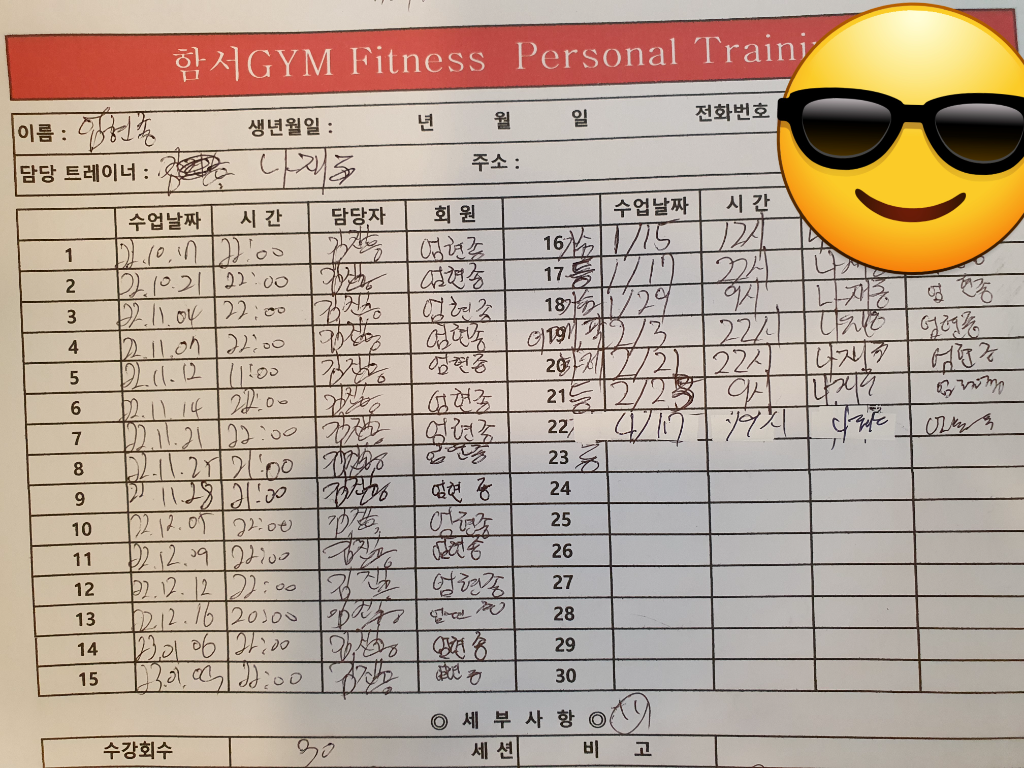 함서GYM Fitness Personal Traini
이름 : 엄현종 생년월일 : 년 월 일 전화번호
담당 트레이너 : 나재종 주소 :
수업날짜 시 간 담당자 회 원 수업날짜 시 간
1 22.10.17 22:00 김진동 엄현종 16 1/15 12시
2 22.10.21 22:00 김진동 엄현종 17 1/17 22시 나재종
3 22.11.04 22:00 김진동 엄현종 18 1/29 9시 나재종 엄현종
4 22.11.07 22:00 김진동 엄현종 19 2/3 22시 나재종 엄현종
5 22.11.12 11:00 김진동 엄현종 20 2/21 22시 나재종 엄현종
6 22.11.14 22:00 김진동 엄현종 21 2/23 9시 나재종
7 22.11.21 22:00 김진동 엄현종 22 4/17 19시
8 21:00 김진동 엄현종 23
9 11.28 21:00 김진동 엄현종 24
10 22.12.05 22:00 김진동 엄현종 25
11 22.12.09 22:00 김진동 엄현종 26
12 22.12.12 22:00 김진동 엄현종 27
13 22.12.16 20:00 28
14 23.01.06 22:00 김진동 엄현종 29
15 23.01.09 22:00 김진동 엄현종 30
◎ 세 부 사 항 ◎
수강회수 30 세 션 비 고